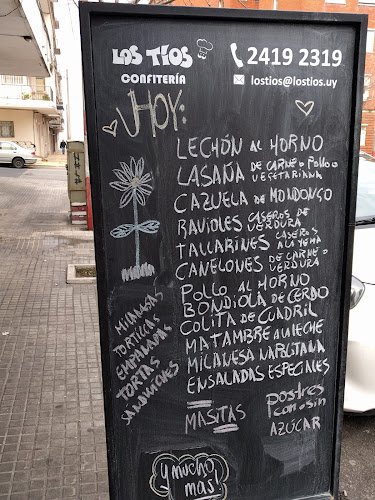 LOS TÍOS
CONFITERÍA
2419 2319
lostios@lostios.uy
HOY:
LECHÓN AL HORNO
LASAÑA DE CARNE O POLLO O VEGETARIANA
CAZUELA DE MONDONGO
RAVIOLES CASEROS DE VERDURA
TALLARINES CASEROS A LA YEMA
CANELONES DE CARNE O VERDURA
POLLO AL HORNO
BONDIOLA DE CERDO
COLITA DE CUADRIL
MATAMBRE A LA LECHE
MILANESA NAPOLITANA
ENSALADAS ESPECIALES
MILANESAS
TORTILLAS
EMPANADAS
TORTAS
SANDWICHES
MASITAS
postres
con o sin
AZÚCAR
y mucho
mas!